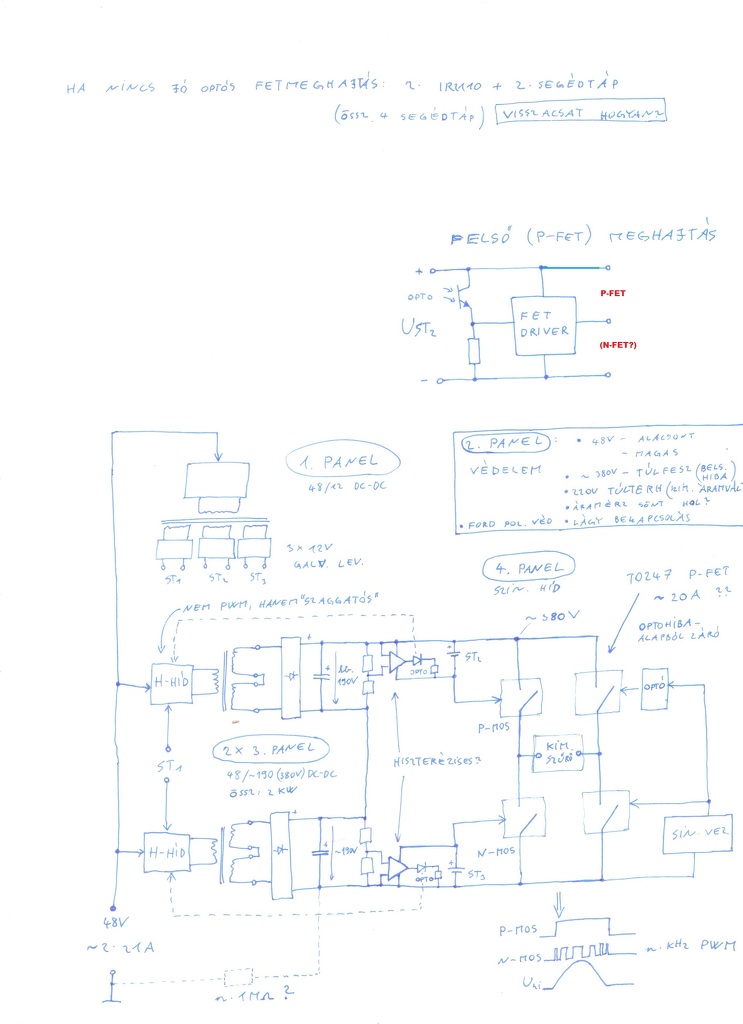 HA NINCS JÓ OPTÓS FETMEGHAJTÁS: 2. IR2110 + 2. SEGÉDTÁP
(ÖSSZ. 4 SEGÉDTÁP) VISSZACSAT HOGYAN?
FELSŐ (P-FET) MEGHAJTÁS
+
P-FET
OPTO
FET
DRIVER
UST2
(N-FET?)
-
1. PANEL
48/12 DC-DC
2. PANEL:
• 48V - ALACSONY
- MAGAS
VÉDELEM
• ~ 380V - TÚLFESZ (BELS. HIBA)
• 220V TÚLTERH (KIM. ÁRAMVÁL
• ÁRAMÉRZ SÖNT HOL?
• FORD POL. VÉD
• LÁGY BEKAPCSOLÁS
3 x 12V
GALV. LEV.
ST1 ST2 ST3
4. PANEL
SZIN. HÍD
TO247 P-FET
~ 20A ??
OPTOHIBA-
ALAPBÓL ZÁRÓ
NEM PWM, HANEM "SZAGGATÓS"
~ 380V
+
ST2
H-HÍD
+
190V
OPTO
OPTÓ
P-MOS
ST1
2 x 3. PANEL
48/~190 (380V) DC-DC
ÖSSZ: 2 KW
HISZTERÉZISES?
KIM.
SZŰRŐ
H-HÍD
+
~190V
OPTO
+
ST3
N-MOS
SIN. VEZ
48V
~ 2. 21A
P-MOS
N-MOS
n. KHz PWM
Uki
n. 1MΩ ?